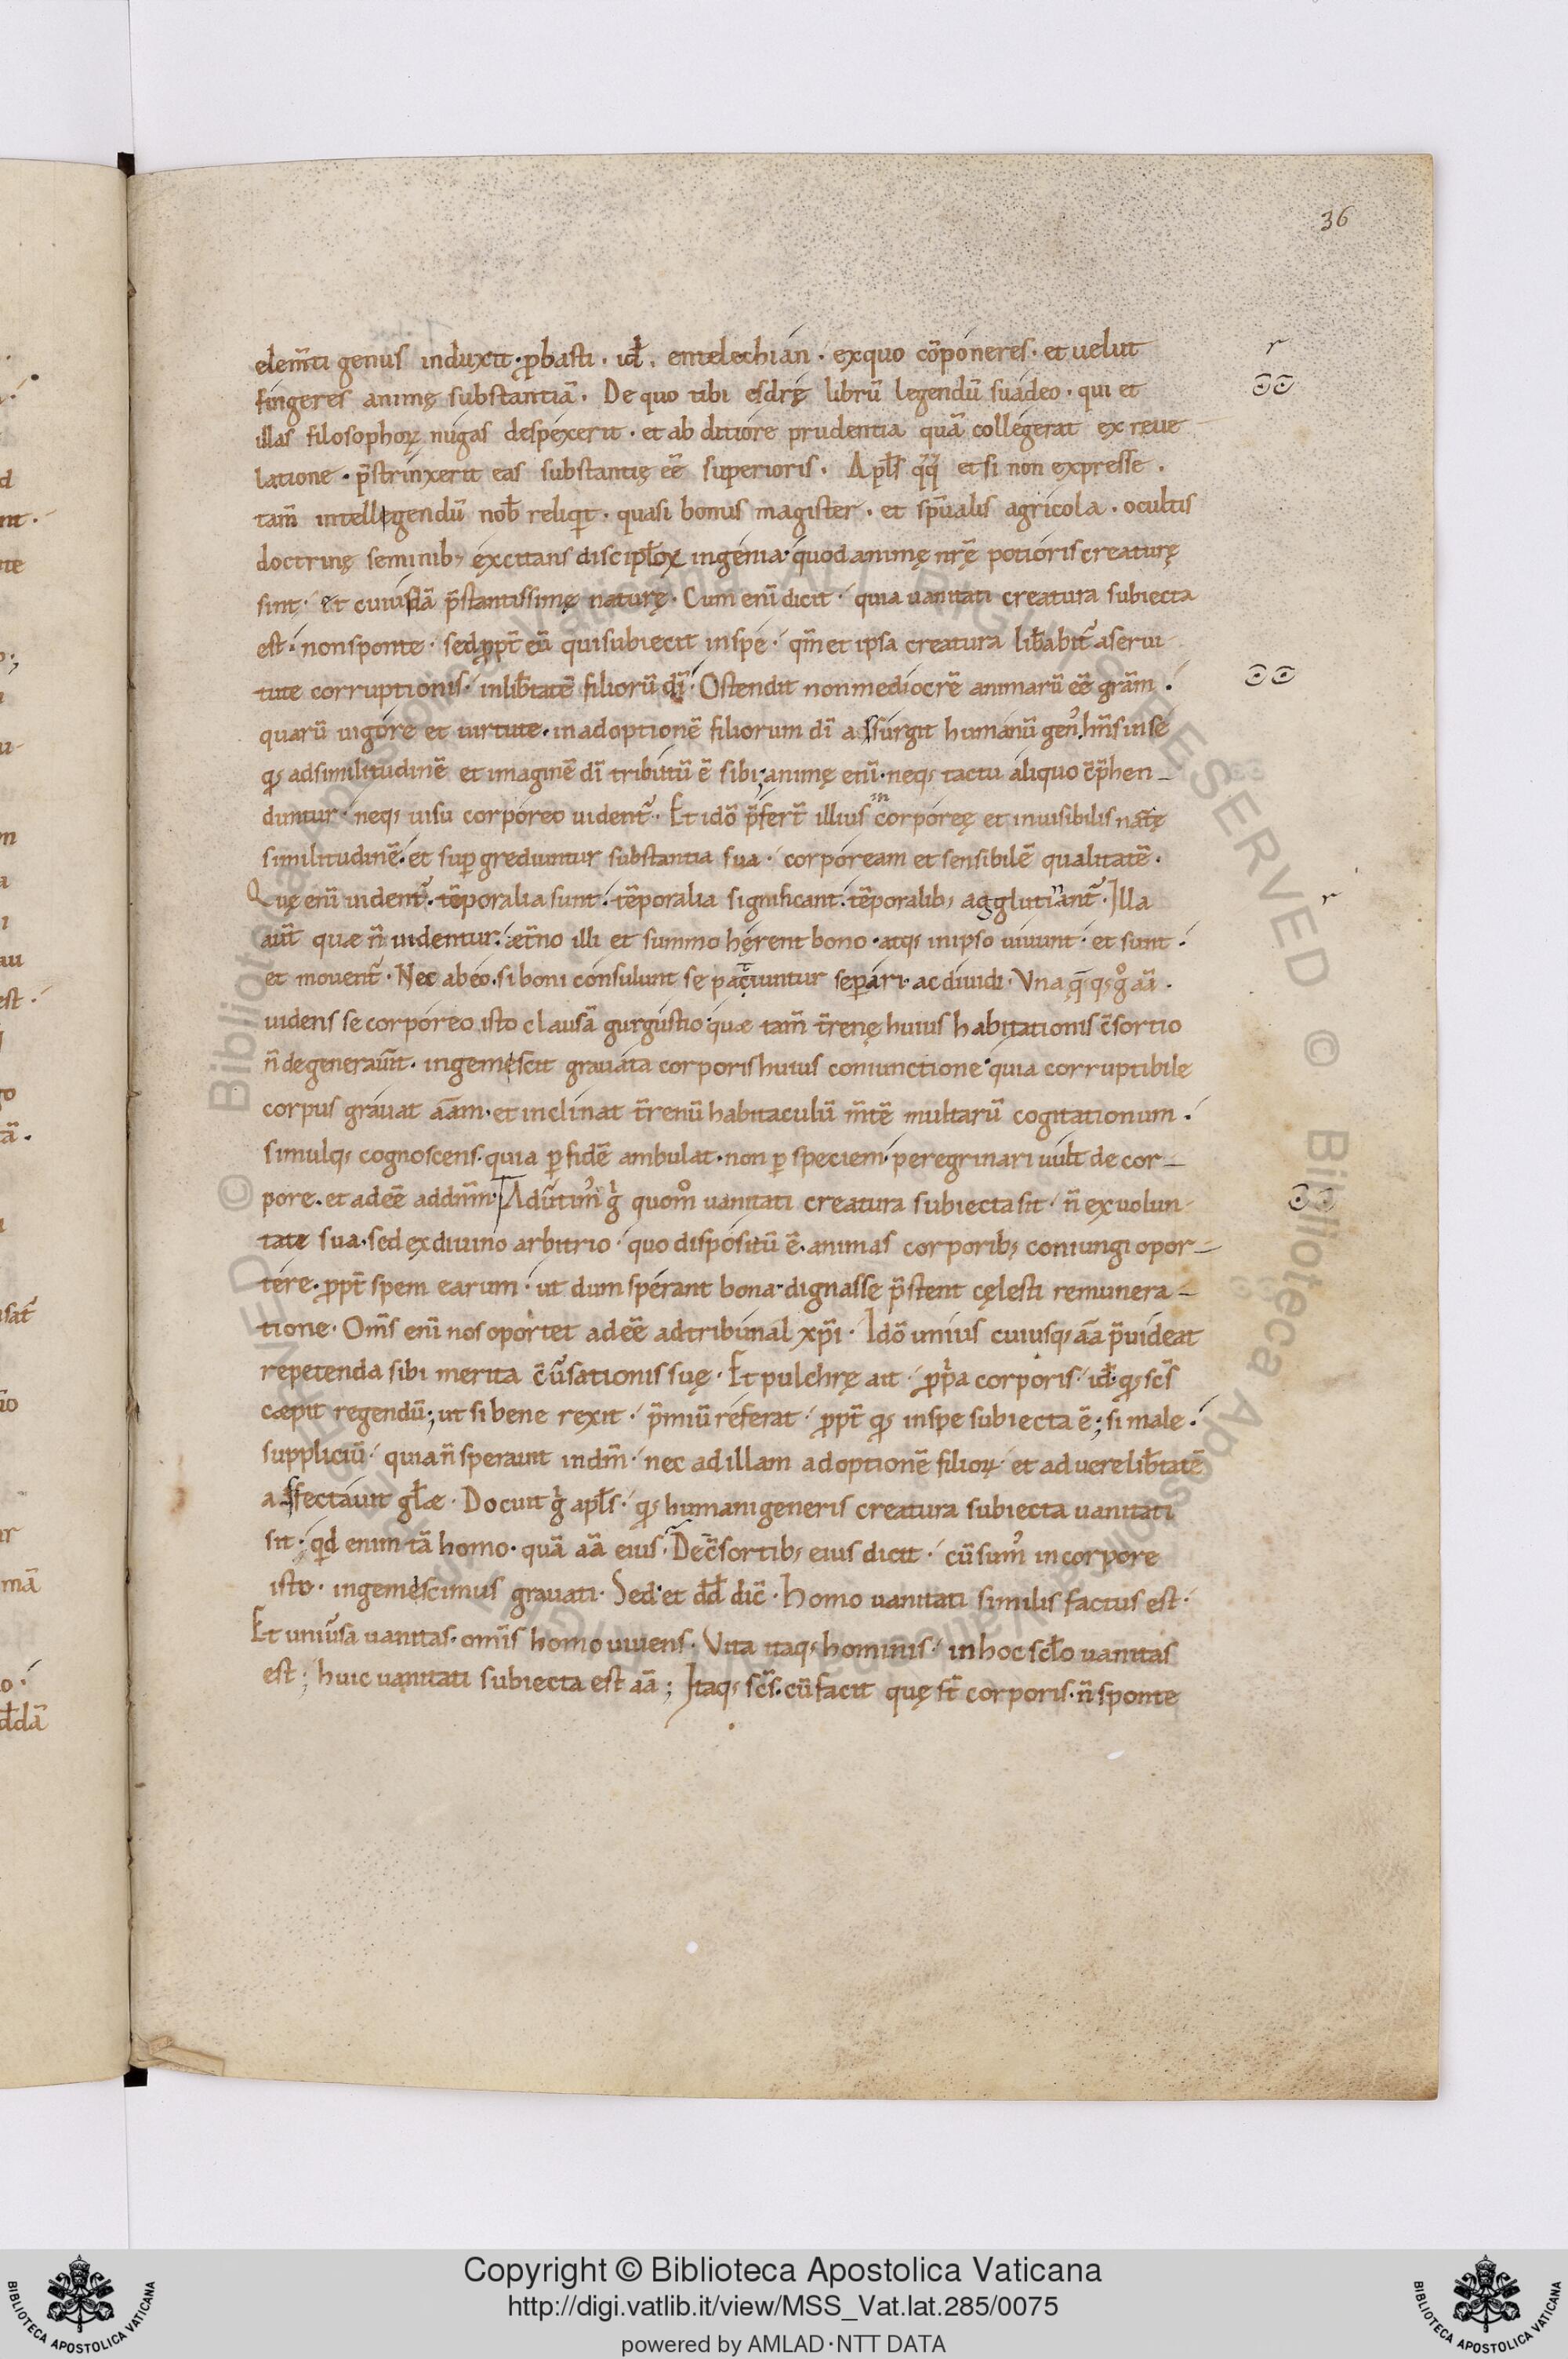 36
elem̄ti genus induxit · ꝓbasti · id̄ · entelechian · exquo cōponeres · et uelut
fingeres animę substantiā · De quo tibi esdrę librū legendū suadeo · qui et
illas filosophoꝝ nugas despexerit · et ab ditiore prudentia quā collegerat ex reue
latione · p̄strinxerit eas substantię eē superioris · Apl̄s q̄q̄ et si non expresse ·
tam̄ intellegendū nob̄ reliq̇t · quasi bonus magister · et sp̄ualis agricola · ocultis
doctrinę seminib; excitans discipl̄oꝝ ingenia · quod animę nr̄ę potioris creaturę
sint · et cuiusdā p̄stantissimę naturę · Cum eni̅ dicit · quia uanitati creatura subiecta
est · non sponte · sed ꝓpt̄ eū qui subiecit inspe · qm̄ et ipsa creatura lib̄abit̄ aserui
tute corruptionis · inlib̄tatē filiorū dī · Ostendit nonmediocrē animarū eē grām ·
quarū uigore et uirtute · in adoptionē filiorum dī assurgit humanū gen᾽ hn̄s inse
qꝫ adsimilitudinē et imaginē dī tributū ē sibi; animę eni̅ · neqꝫ tactu aliquo c̄p̄hen
duntur · neqꝫ uisu corporeo uident̄ · Et idō p̄fert̄ illius incorporeę et inuisibilis nat̄ę
similitudinē · et suꝑgrediuntur substantia sua · corpoream et sensibilē qualitatē ·
Quę eni̅ uident̄ · tēporalia sunt · tēporalia significant · tēporalib; agglutinant̄ · Illa
aut̄ quæ n̄ uidentur · æt̄no illi et summo hęrent bono · atqꝫ inipso uiuunt · et sunt ·
et mouent̄ · Nec abeo · si boni consulunt se patiuntur separi · ac diuidi · Una q̄qꝫ g° aā ·
uidens se corporeo isto clausā gurgustio quæ tam̄ t̄renę huius habitationis c̄sortio
n̄ degenerau̅it · ingemescit grauata corporis huius coniunctione · quia corruptibile
corpus grauat aām · et inclinat t̄renū habitaculū m̄tē multarū cogitationum ·
simulqꝫ cognoscens · quia ꝑ fidē ambulat · non ꝑ speciem peregrinari uult de cor
pore · et adeē addnm̄ · Adu̅tim᾽ g̊ quom̊ uanitati creatura subiecta sit · n̄ ex uolun
tate sua · sed ex diuino arbitrio · quo dispositū ē · animas corporibꝫ coniungi opor
tere · ꝓpt̄ spem earum · ut dum sperant bona · dignasse p̄stent cęlesti remunera
tione · Om̄s eni̅ nos oportet adeē adtribunal xp̄i · Idō unius cuiusqꝫ aā p̄uideat
repetenda sibi merita c̄u̅sationis suę · Et pulchrę ait · ꝓp̄a corporis · id̄ · qꝫ sc̄s
cæpit regendū; ut si bene rexit · p̄miū referat · ꝓpt̄ qꝫ inspe subiecta ē; si male ·
suppliciū · quia n̄ speraut indm̄ · nec adillam adoptionē filioꝝ · et ad uere lib̄tatē
affectauit gl̄æ · Docuit g̊ apl̄s · qꝫ humani generis creatura subiecta uanitati
sit; qd enim tā homo · quā aā eius · Dec̄sortib; eius dicit · cū sum᾽ in corpore
isto · ingemescimus grauati · Sed et dd̄ dic̄ · Homo uanitati similis factus est ·
Et uniu̅sa uanitas · omīs homo uiuens · Vita itaqꝫ hominis · in hoc scl̄o uanitas
est; huic uanitati subiecta est aā; Itaqꝫ sc̄s · cū facit quę st̄ corporis · n̄ sponte
Copyright © Biblioteca Apostolica Vaticana
http://digi.vatlib.it/view/MSS_Vat.lat.285/0075
powered by AMLAD·NTT DATA